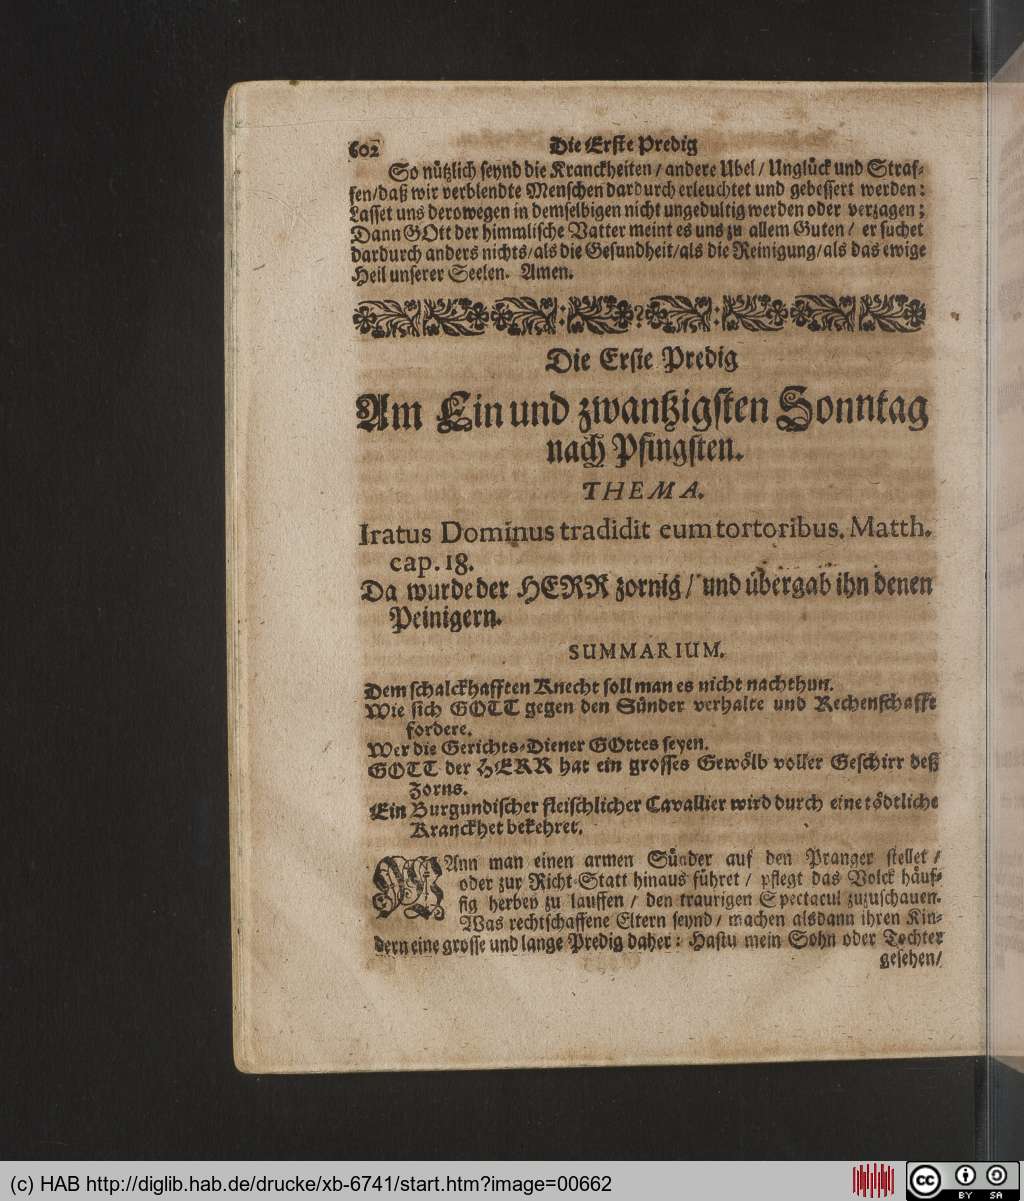 602 Die Erste Predig
So nützlich seynd die Kranckheiten / andere Ubel / Unglück und Straf-
fen / daß wir verblendte Menschen dardurch erleuchtet und gebessert werden:
Lasset uns derowegen in demselbigen nicht ungedultig werden oder verzagen;
Dann GOtt der himmlische Vatter meint es uns zu allem Guten / er suchet
dardurch anders nichts / als die Gesundheit / als die Reinigung / als das ewige
Heil unserer Seelen. Amen.
Die Erste Predig
Am Ein und zwantzigsten Sonntag
nach Pfingsten.
THEMA.
Iratus Dominus tradidit eum tortoribus. Matth.
cap. 18.
Da wurde der HERR zornig / und übergab ihn denen
Peinigern.
SUMMARIUM.
Dem schalckhafften Knecht soll man es nicht nachthun.
Wie sich GOTT gegen den Sünder verhalte und Rechenschafft
fordere.
Wer die Gerichts-Diener GOttes seyen.
GOTT der HERR hat ein grosses Gewölb voller Geschirr deß
Zorns.
Ein Burgundischer fleischlicher Cavallier wird durch eine tödtliche
Kranckhet bekehret.
WAnn man einen armen Sünder auf den Pranger stellet /
oder zur Richt-Statt hinaus führet / pflegt das Volck häuf-
fig herbey zu lauffen / den traurigen Spectacul zuzuschauen.
Was rechtschaffene Eltern seynd / machen alsdann ihren Kin-
dern eine grosse und lange Predig daher: Hastu mein Sohn oder Tochter
gesehen /
(c) HAB http://diglib.hab.de/drucke/xb-6741/start.htm?image=00662
CC BY SA